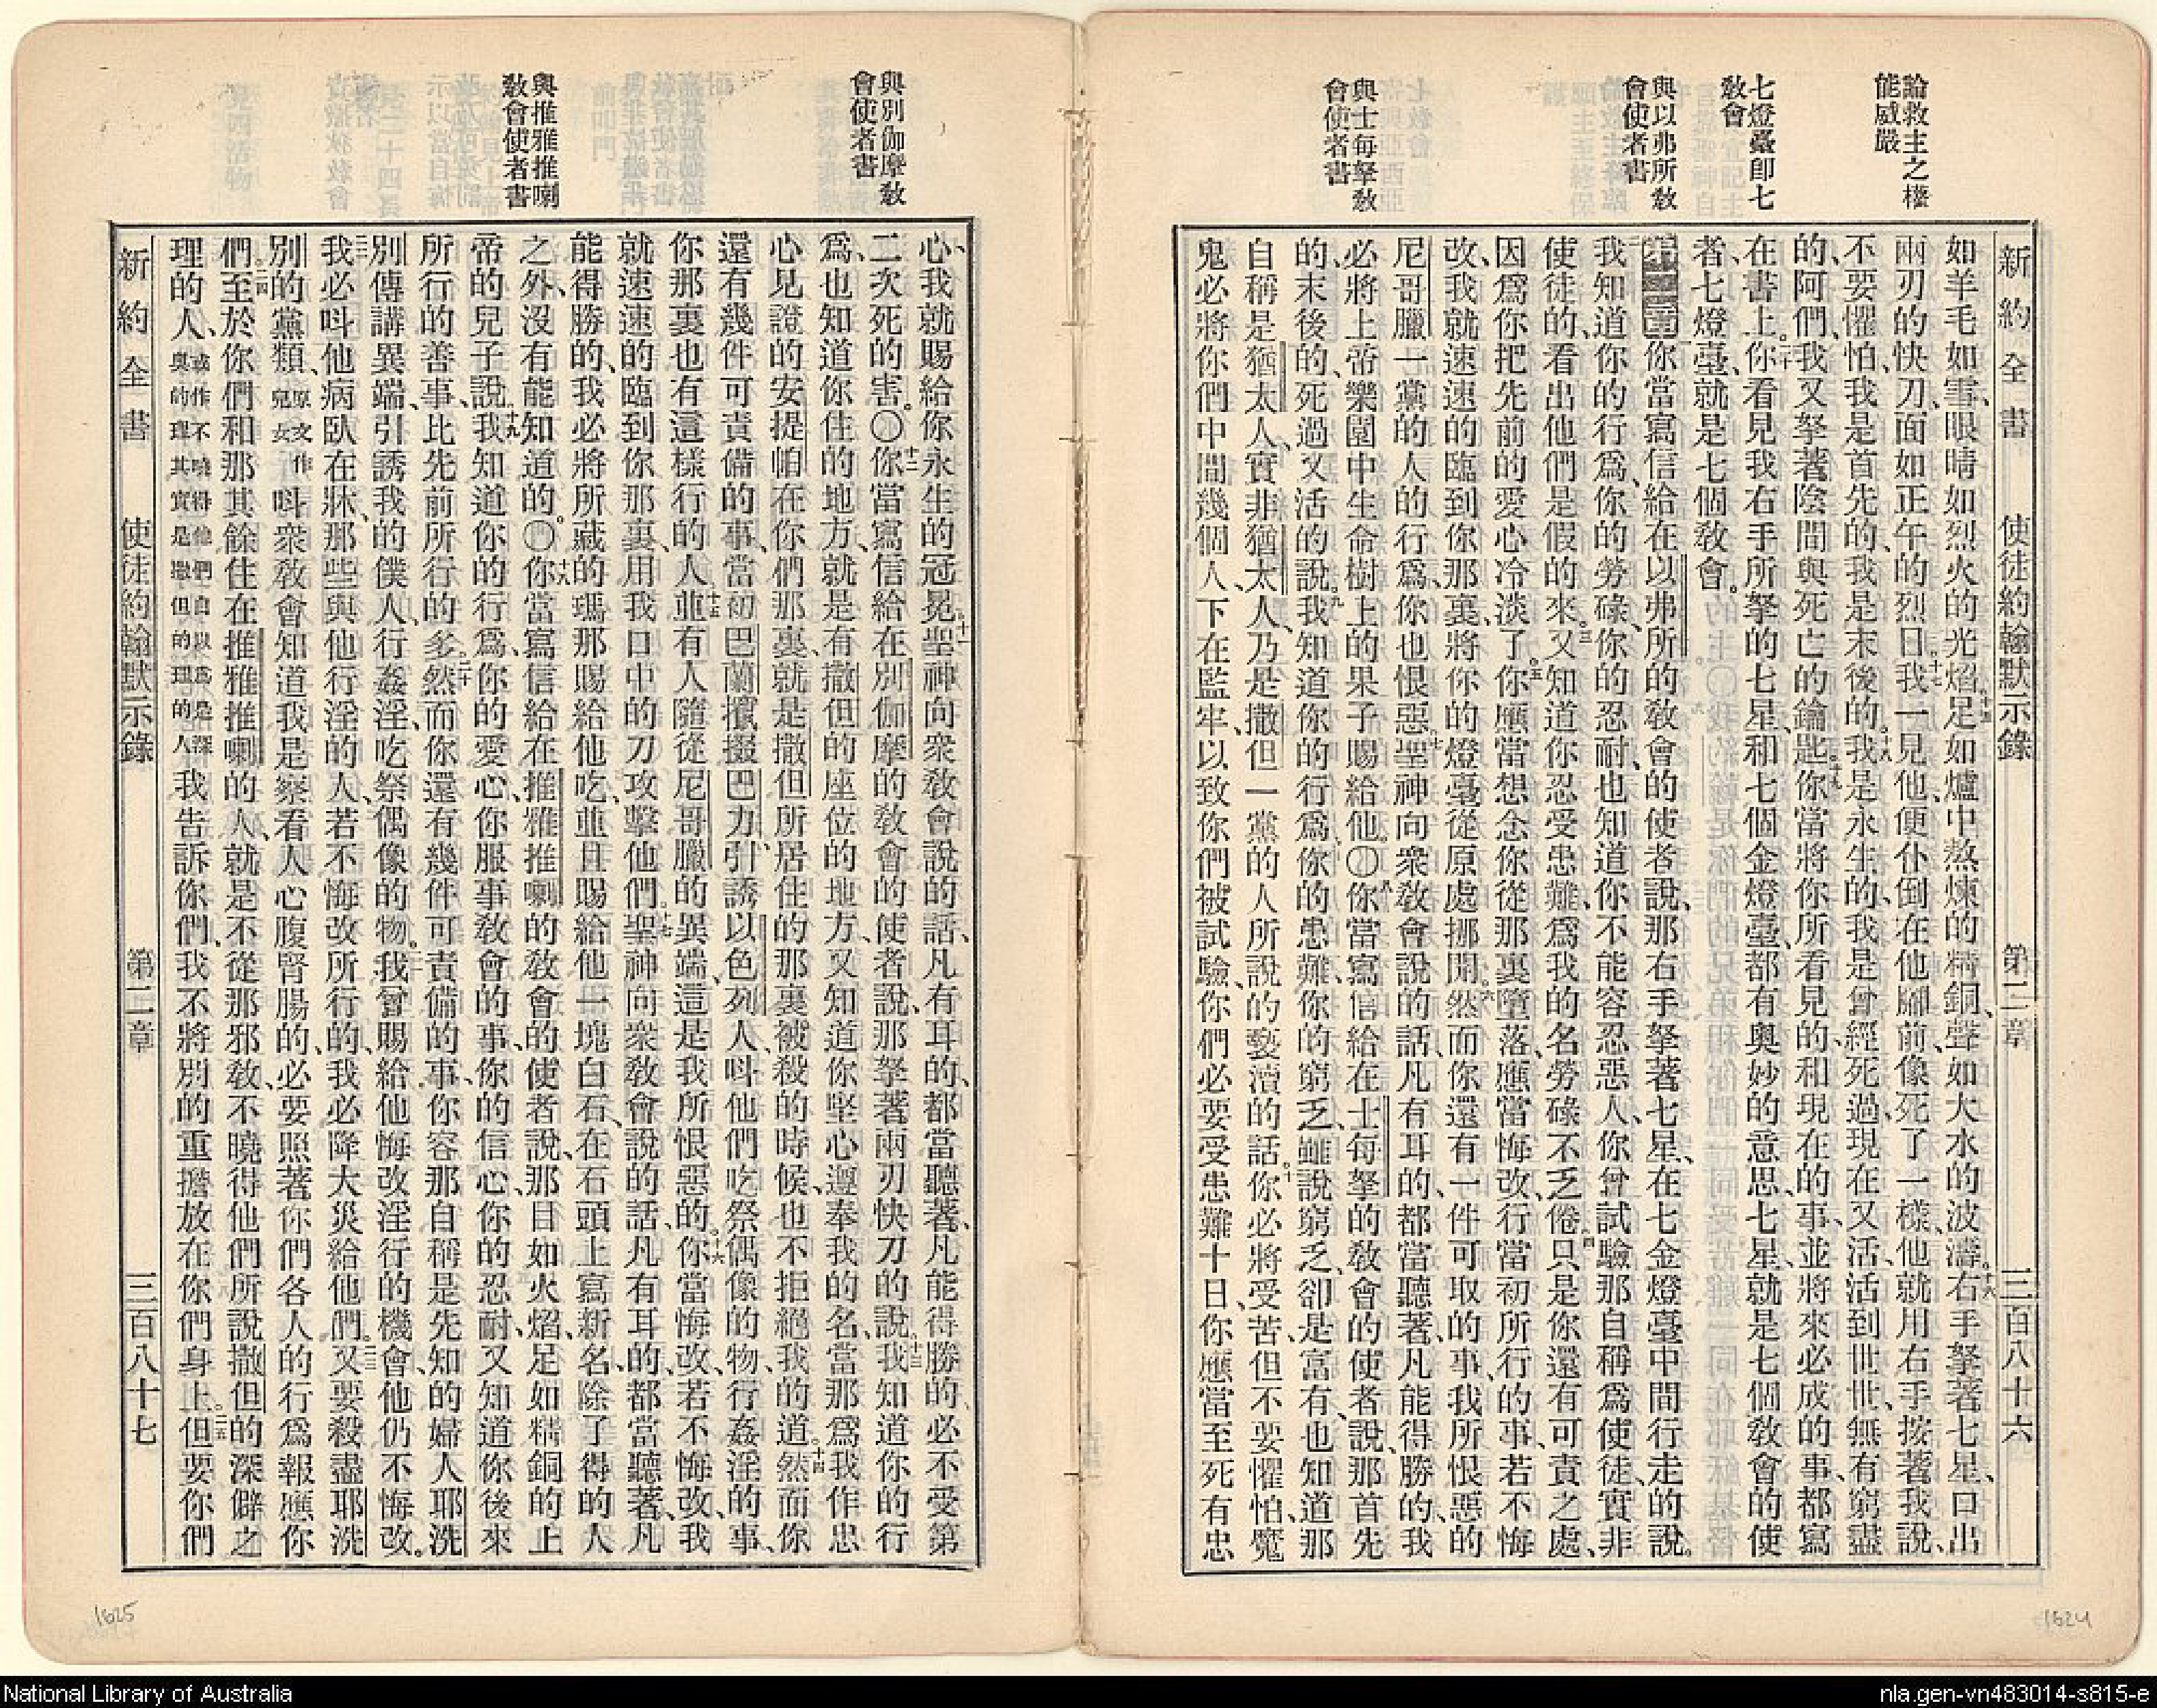 論救主之權
能威嚴
七燈臺卽七
敎會
與以弗所敎
會使者書
與士每拏敎
會使者書
新約全書 使徒約翰默示錄 第二章 三百八十六
如羊毛如雪、眼睛如烈火的光焰。十五足如爐中熬煉的精銅、聲如大水的波濤。十六右手拏著七星、口出
兩刃的快刀、面如正午的烈日。十七我一見他、便仆倒在他脚前、像死了一樣、他就用右手按著我說、
不要懼怕、我是首先的、我是末後的。十八我是永生的、我是曾經死過、現在又活、活到世世無有窮盡
的阿們、我又拏著陰間與死亡的鑰匙。十九你當將你所看見的、和現在的事、並將來必成的事、都寫
在書上。二十你看見我右手所拏的七星、和七個金燈臺、都有奧妙的意思、七星就是七個敎會的使
者、七燈臺就是七個敎會。
第二章 你當寫信給在以弗所的敎會的使者說、那右手拏著七星、在七金燈臺中間行走的說。
二我知道你的行爲、你的勞碌、你的忍耐、也知道你不能容忍惡人、你曾試驗那自稱爲使徒、實非
使徒的、看出他們是假的來。三又知道你忍受患難、爲我的名勞碌不乏倦。四只是你還有可責之處、
因爲你把先前的愛心冷淡了。五你應當想念你從那裏墮落、應當悔改、行當初所行的事、若不悔
改、我就速速的臨到你那裏、將你的燈臺從原處挪開。六然而你還有一件可取的事、我所恨惡的
尼哥臘一黨的人的行爲、你也恨惡。七聖神向衆敎會說的話、凡有耳的、都當聽著、凡能得勝的、我
必將上帝樂園中生命樹上的果子賜給他。〇八你當寫信給在士每拏的敎會的使者說、那首先
的、末後的、死過又活的說。九我知道你的行爲、你的患難、你的窮乏、雖說窮乏、卻是富有、也知道那
自稱是猶太人、實非猶太人、乃是撒但一黨的人所說的褻瀆的話。十你必將受苦、但不要懼怕、魔
鬼必將你們中間幾個人、下在監牢、以致你們被試驗、你們必要受患難十日、你應當至死有忠
1624
與別伽摩敎
會使者書
與推雅推喇
敎會使者書
心、我就賜給你永生的冠冕。十一聖神向衆敎會說的話、凡有耳的、都當聽著、凡能得勝的、必不受第
二次死的害。〇十二你當寫信給在別伽摩的敎會的使者說、那拏著兩刃快刀的說。十三我知道你的行
爲、也知道你住的地方、就是有撒但的座位的地方、又知道你堅心遵奉我的名、當那爲我作忠
心見證的安提帕在你們那裏、就是撒但所居住的那裏被殺的時候、也不拒絕我的道。十四然而你
還有幾件可責備的事、當初巴蘭攛掇巴力、引誘以色列人、呌他們吃祭偶像的物、行姦淫的事、
你那裏也有這樣行的人。十五並有人隨從尼哥臘的異端、這是我所恨惡的。十六你當悔改、若不悔改、我
就速速的臨到你那裏、用我口中的刀攻擊他們。十七聖神向衆敎會說的話、凡有耳的、都當聽著、凡
能得勝的、我必將所藏的瑪那賜給他吃、並且賜給他一塊白石、在石頭上寫新名、除了得的人
之外、沒有能知道的。〇十八你當寫信給在推雅推喇的敎會的使者說、那目如火焰、足如精銅的上
帝的兒子說。十九我知道你的行爲、你的愛心、你服事敎會的事、你的信心、你的忍耐、又知道你後來
所行的善事、比先前所行的多。二十然而你還有幾件可責備的事、你容那自稱是先知的婦人耶洗
別傳講異端、引誘我的僕人、行姦淫、吃祭偶像的物。二一我曾賜給他悔改淫行的機會、他仍不悔改。
二二我必呌他病臥在牀、那些與他行淫的人、若不悔改所行的、我必降大災給他們。二三又要殺盡耶洗
別的黨類、原文作兒女呌衆敎會知道我是察看人心腹腎腸的、必要照著你們各人的行爲報應你
們。二四至於你們和那其餘住在推雅推喇的人、就是不從那邪敎、不曉得他們所說撒但的深僻之
理的人、或作不曉得他們自以爲是深奧的理其實是撒但的理的人我告訴你們、我不將別的重擔放在你們身上。二五但要你們
新約全書 使徒約翰默示錄 第二章 三百八十七
1625
National Library of Australia
nla.gen-vn483014-s815-e